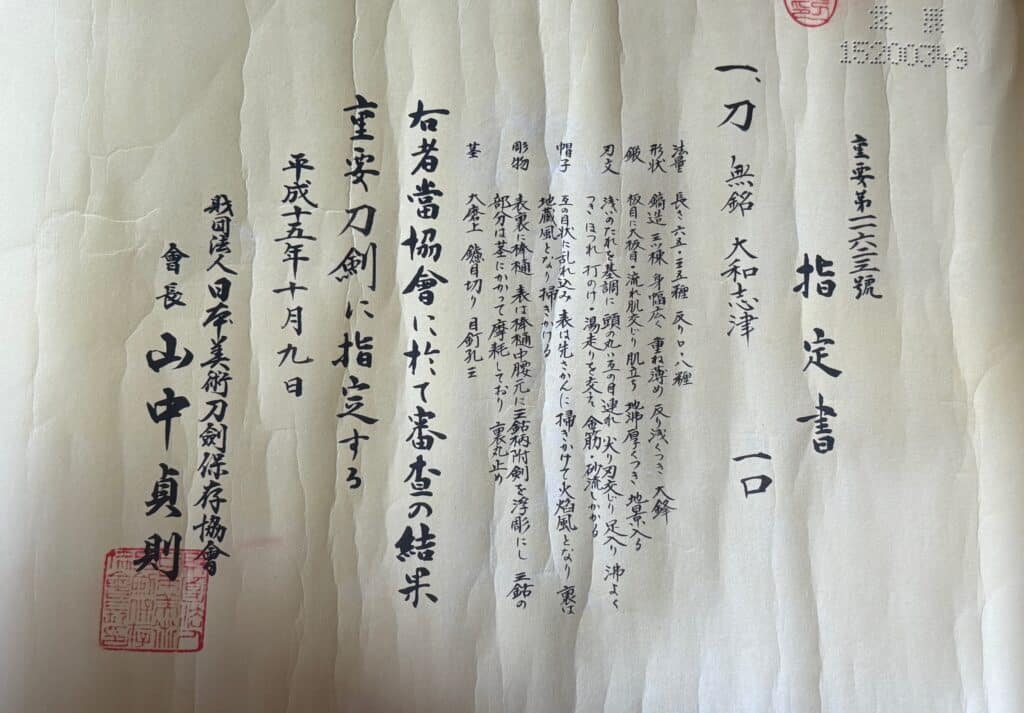 15200349
重要第一一六三號
指定書
一、刀 無銘 大和志津 一口
法量 長さ 六五・五糎 反り〇・八糎
形状 鎬造 三ツ棟 身幅広く 重ね薄め 反り浅くつき 大鋒
鍛 板目に大板目・流れ肌交じり 肌立ち 地沸厚くつき 地景入る
刃文 浅いのたれを基調に 頭の丸い互の目連れ 尖り刃交じり 足入り 沸よく
つき ほつれ 打のけ・湯走りを交え 金筋・砂流しかかる
帽子 互の目状に乱れ込み 表は先さかんに掃きかけて火焔風となり 裏は
地蔵風となり掃きかける
彫物 表裏に棒樋 表は棒樋中腰元に三鈷柄附剣を浮彫にし 三鈷の
部分は茎にかかって摩耗しており 裏丸止め
茎 大磨上 鑢目切り 目釘孔三
右者當協會に於て審査の結果
重要刀劍に指定する
平成十五年十月九日
財団法人日本美術刀劍保存協會
會長 山中貞則